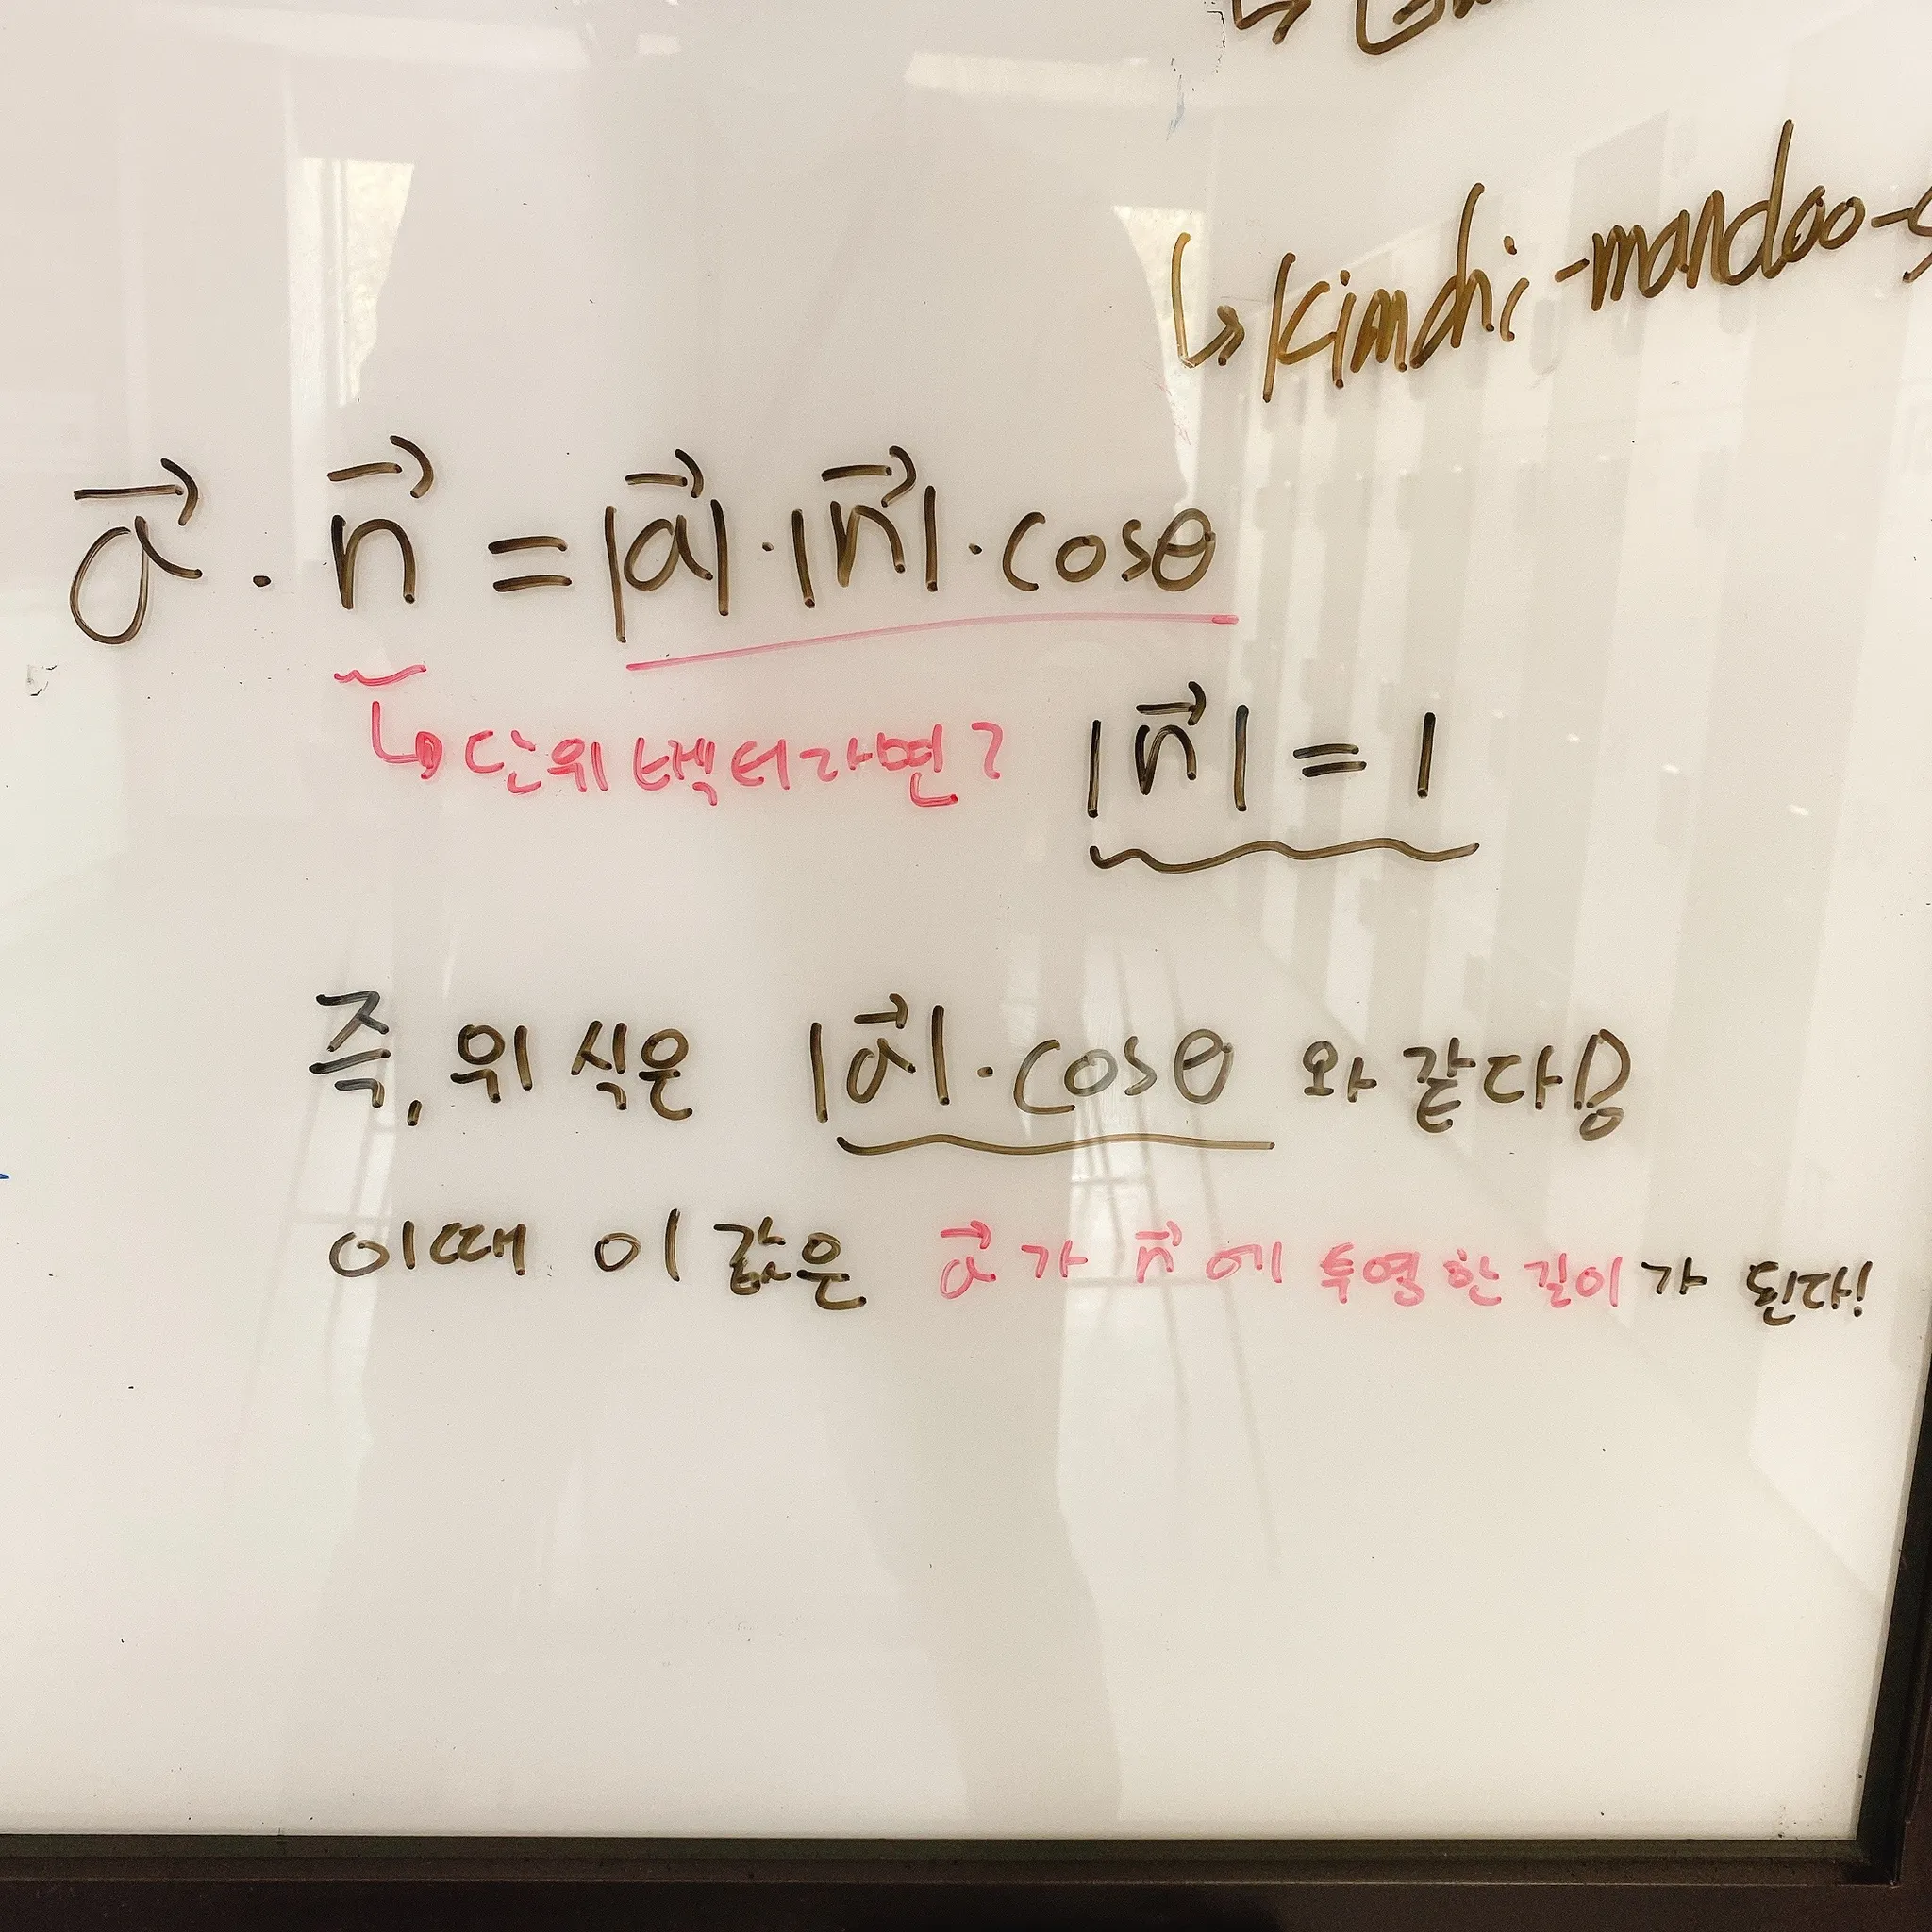 ↳ kimchi-mandoo-
a⃗ · n⃗ = |a⃗| · |n⃗| · cosθ
↳ 단위 벡터라면? |n⃗| = 1
즉, 위 식은 |a⃗| · cosθ 와 같다!
이때 이 값은 a⃗ 가 n⃗ 에 투영한 길이가 된다!